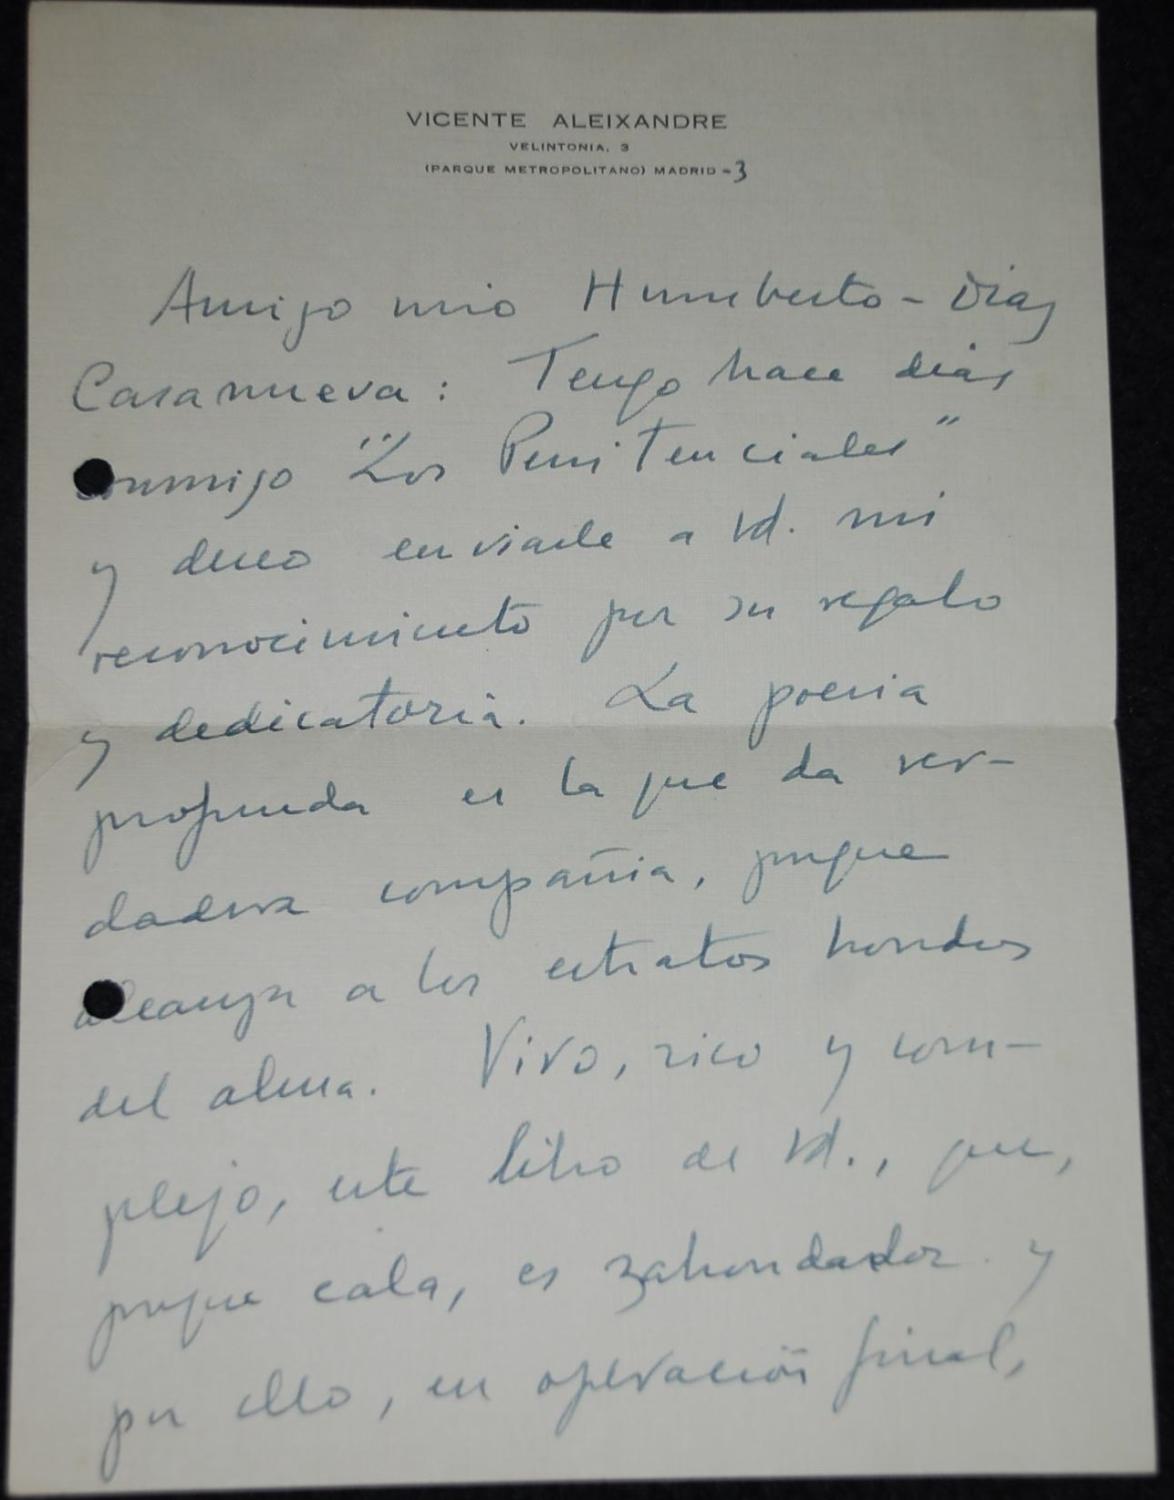 VICENTE ALEIXANDRE
VELINTONIA, 3
(PARQUE METROPOLITANO) MADRID - 3
Amigo mio Humberto - Diaz
Casanueva: Tengo hace dias
conmigo "Los Penitenciales"
y deseo enviarle a Vd. mi
reconocimiento por su regalo
y dedicatoria. La poesia
profunda es la que da ver-
dadera compañia, porque
alcanza a los estratos hondos
del alma. Vivo, rico y com-
plejo, este libro de Vd., que,
porque cala, es zahondador y
por ello, en operación final,